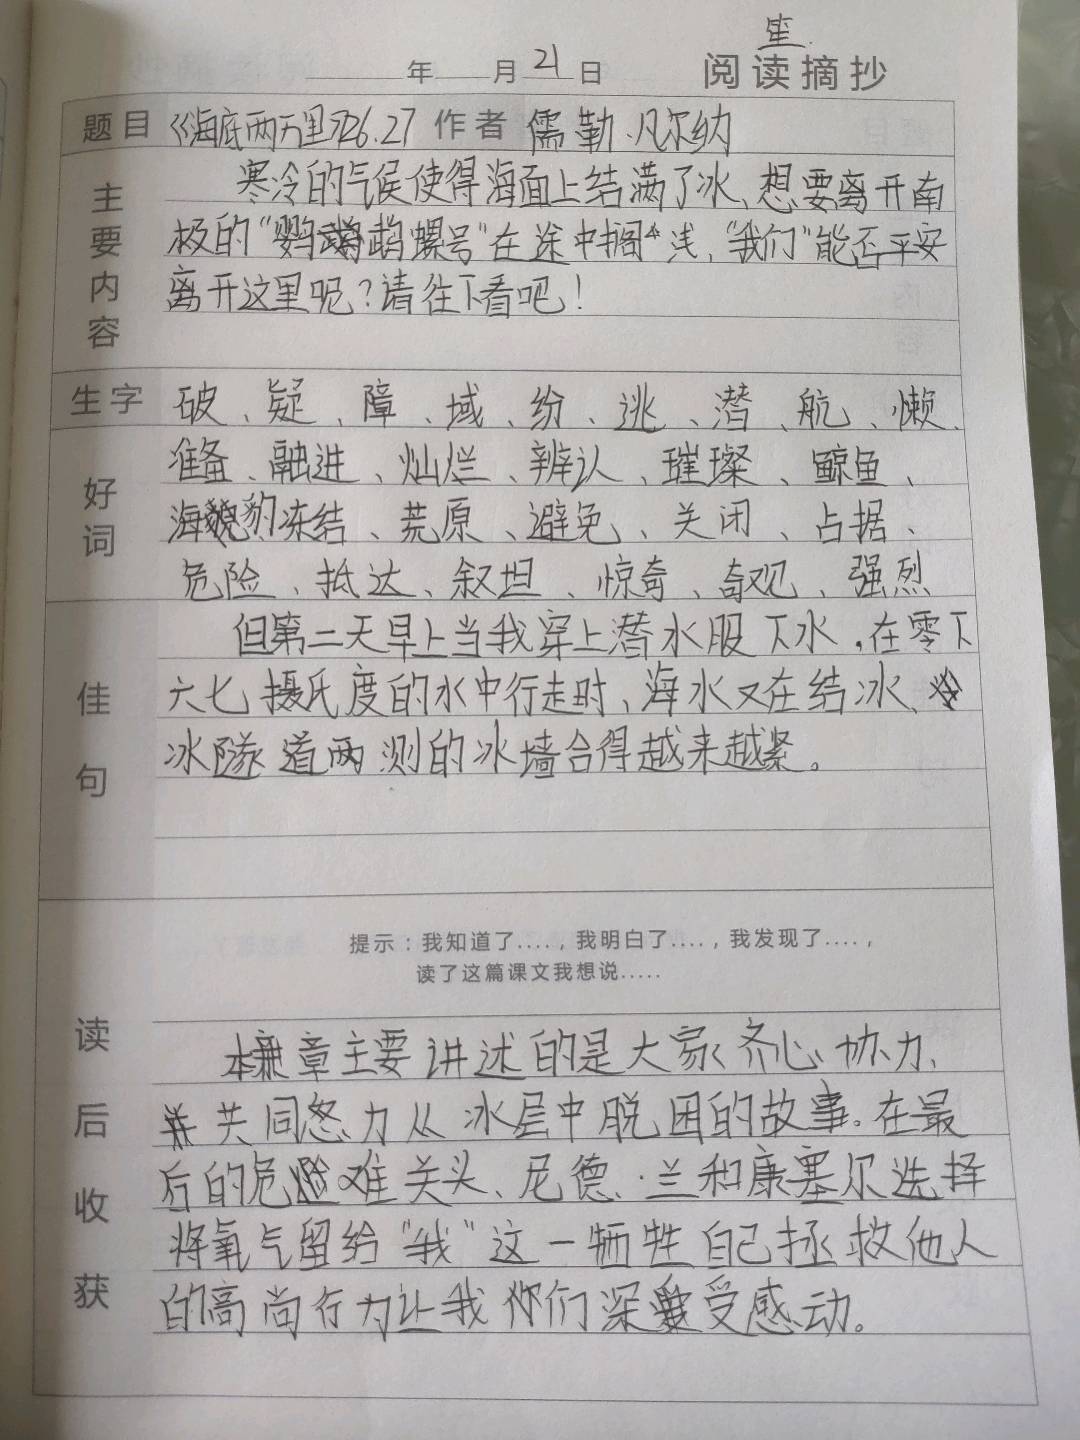 年 月21日 阅读摘抄
题目 《海底两万里》26.27 作者 儒勒·凡尔纳
主要内容
寒冷的气候使得海面上结满了冰、想要离开南
极的“鹦鹉螺号”在途中搁浅,“我们”能否平安
离开这里呢?请往下看吧!
生字 破、疑、障、域、纷、逃、潜、航、懒、
好词
准备、融进、灿烂、辨认、璀璨、鲸鱼、
海豹冻结、荒原、避免、关闭、占据、
危险、抵达、叙坦、惊奇、奇观、强烈
佳句
但第二天早上当我穿上潜水服下水,在零下
六七摄氏度的水中行走时、海水又在结冰、
冰隧道两测的冰墙合得越来越紧。
提示:我知道了....,我明白了....,我发现了....,
读了这篇课文我想说.....
读后收获
本章主要讲述的是大家齐心协力、
共同努力从冰层中脱困的故事。在最
后的危难关头、尼德·兰和康塞尔选择
将氧气留给“我”这一牺牲自己拯救他人
的高尚行为让我们深受感动。